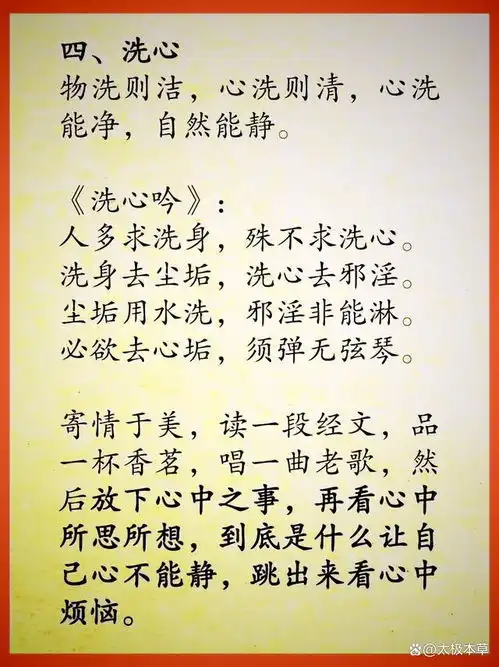 四、洗心
物洗则洁，心洗则清，心洗
能净，自然能静。
《洗心吟》：
人多求洗身，殊不求洗心。
洗身去尘垢，洗心去邪淫。
尘垢用水洗，邪淫非能淋。
必欲去心垢，须弹无弦琴。
寄情于美，读一段经文，品
一杯香茗，唱一曲老歌，然
后放下心中之事，再看心中
所思所想，到底是什么让自
己心不能静，跳出来看心中
烦恼。
@太极本草